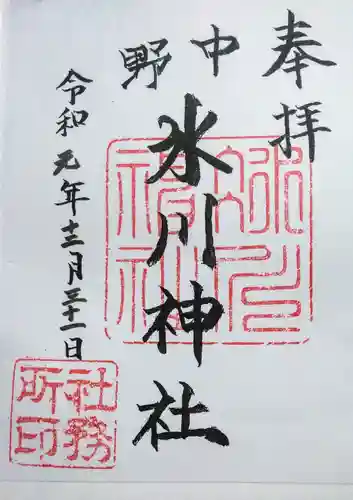 奉拝
中野
氷川神社
令和元年十二月三十一日
氷川神社
社務所印